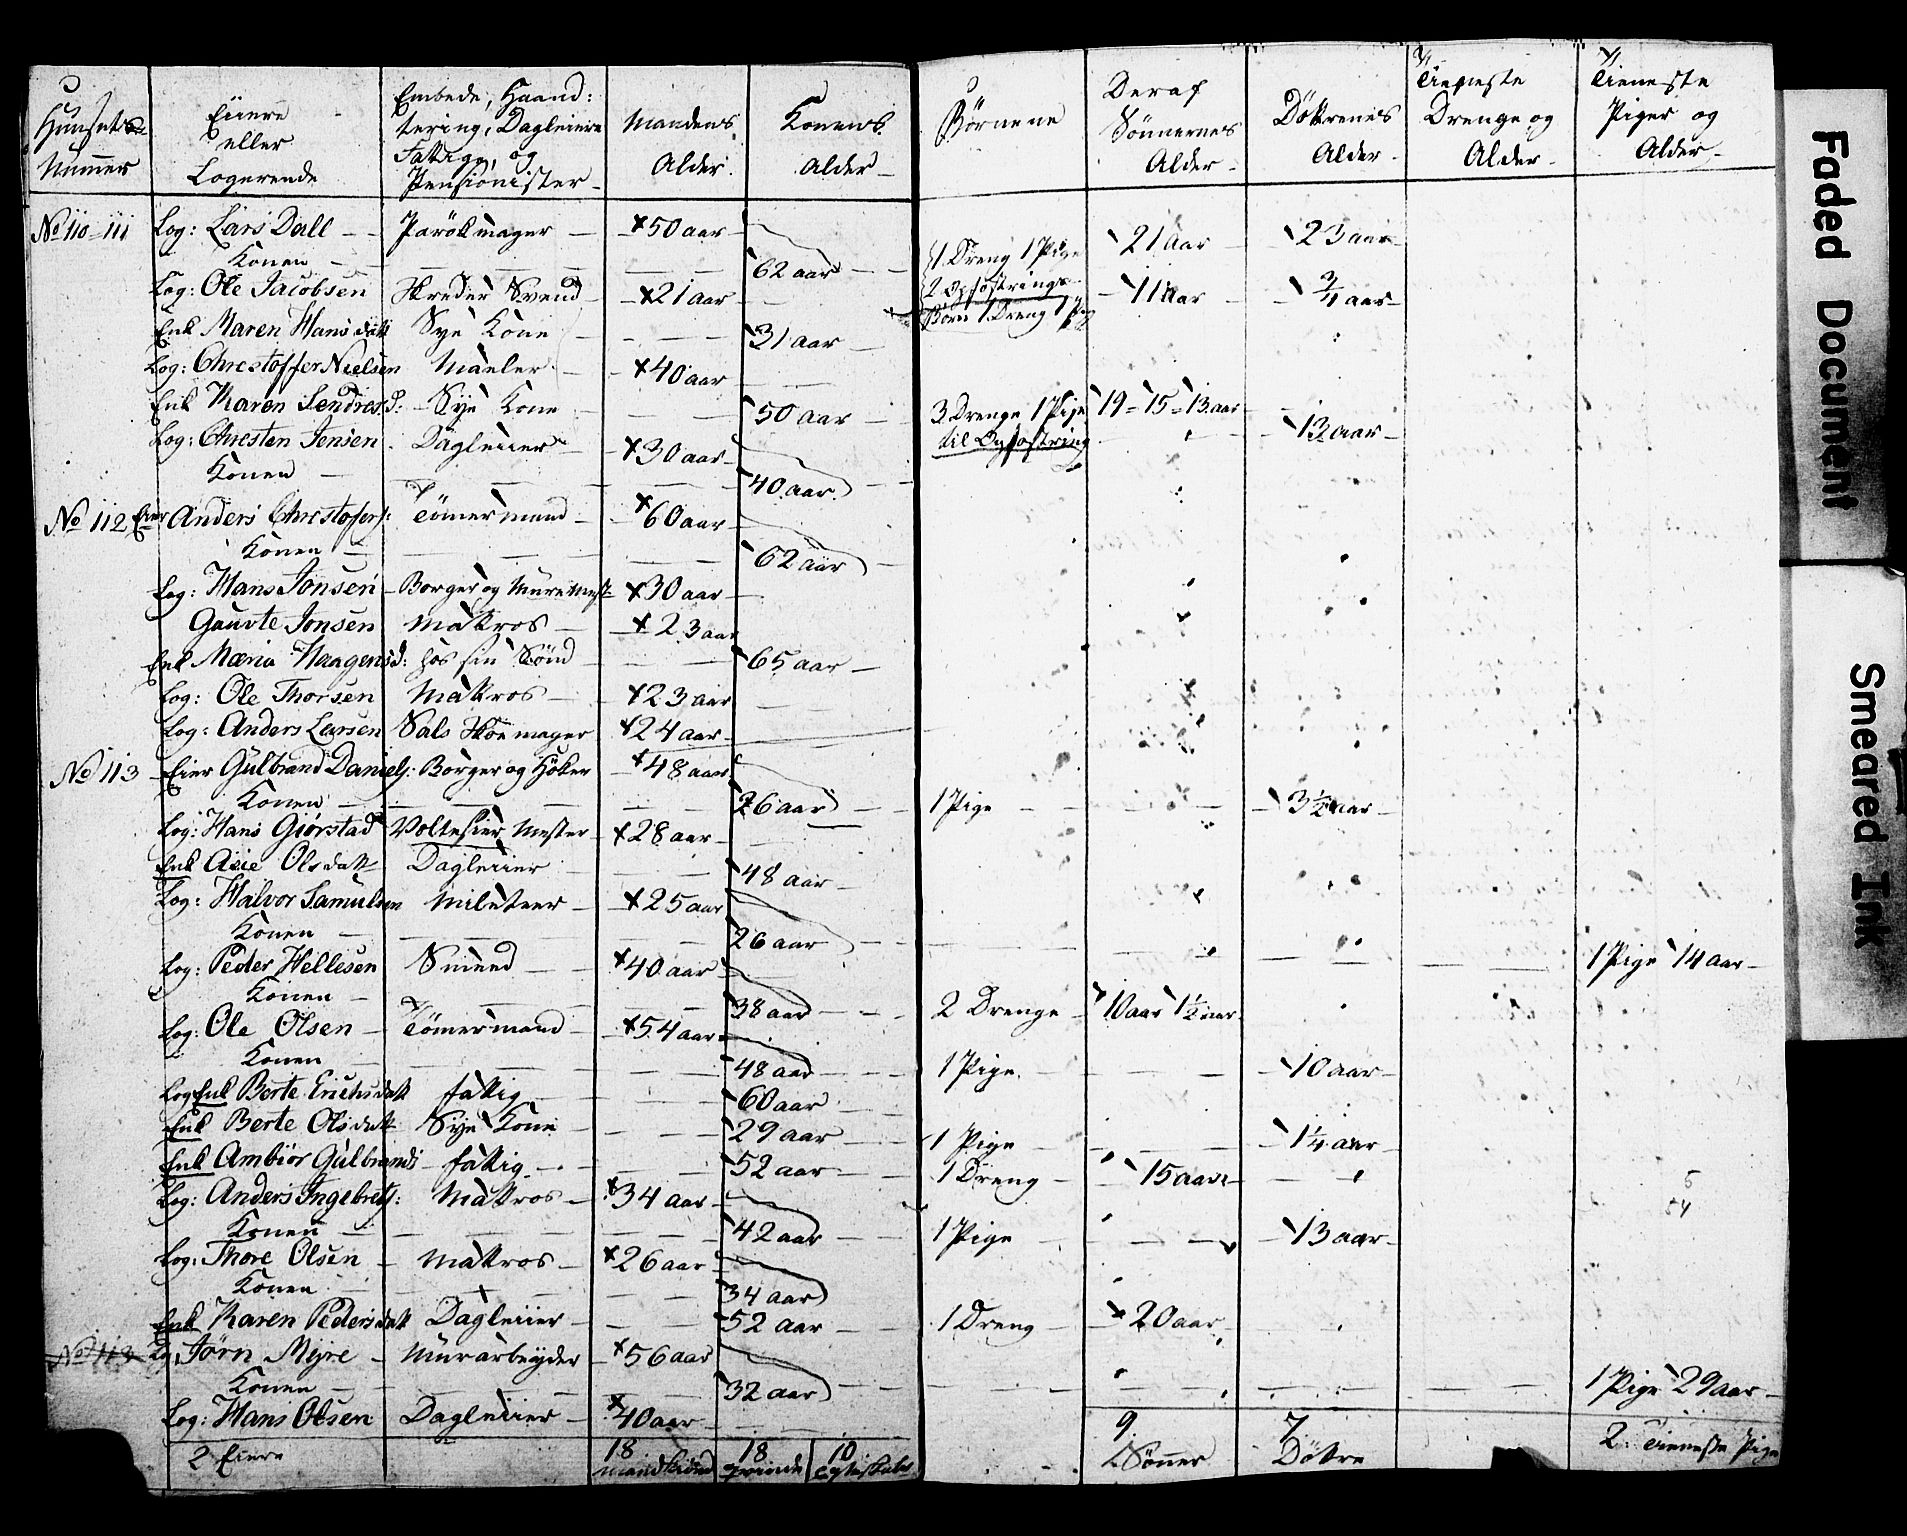 Huusets Nummer | Eiere eller Logerende | Embede, Haand: tering, Dagleiere Fattige, og Pensionister | Mandens Alder | Konens Alder | Börnene | Deraf Sönnernes Alder | Döttrenes Alder | Tieneste Drenge og Alder | Tieneste Piger og Alder
No 110-111 Log: Lars Dall | Parökmager | 50 aar | 1 Dreng 1 Pige | 21 aar | 23 aar
Konen | 62 aar | 2 Opfostrings
Log: Ole Jacobsen | Skreder Svend | 21 aar | Börn 1 Dreng 1 Pig | 11 aar | 3/4 aar
Enk Maren Hansdatt | Sye Kone | 31 aar
Log: Chrestoffer Nielsen | Maaler | 40 aar
Enk Karen Sendresd: | Sye Kone | 50 aar | 3 Drenge 1 Pige | 19 = 15 = 13 aar
Log: Chresten Jensen | Dagleiier | 30 aar | til Opfostring | 13 aar
Konen | 40 aar
No 112 Eier Anders Chrestofers: | Tömermand | 60 aar
Konen | 62 aar
Log: Hans Jonsen | Borger og Muremest | 30 aar
Gauvte Jonsen | Matros | 23 aar
Enk Maria Haagensd: | hos sin Sönd | 65 aar
Log: Ole Thorsen | Matros | 23 aar
Log: Anders Larsen | Sals Skoemager | 24 aar
No 113 Eier Gulbrand Daniels: | Borger og Höker | 48 aar
Konen | 26 aar | 1 Pige | 3 1/2 aar
Log: Hans Giörstad | Voltesier Mester | 28 aar
Enk Asie Olsdatt | Dagleiier | 48 aar
Log: Halvor Samulsen | Mileteer | 25 aar
Konen | 26 aar
Log: Peder Hellesen | Smeed | 40 aar | 1 Pige 14 aar
Konen | 38 aar | 2 Drenge | 10 aar 1 1/2 aar
Log: Ole Olsen | Tömermand | 54 aar
Konen | 48 aar | 1 Pige | 10 aar
Log Enk Berte Erichsdatt | fattig | 60 aar
Enk Berte Olsdatt | Sye Kone | 29 aar | 1 Pige | 1 1/4 aar
Enk Ambiör Gulbrands | fattig | 52 aar | 1 Dreng | 15 aar
Log: Anders Ingebrets: | Matros | 34 aar
5
54
Konen | 42 aar | 1 Pige | 13 aar
Log: Thore Olsen | Matros | 26 aar
Konen | 34 aar
Enk Karen Pedersdatt | Dagleiier | 52 aar | 1 Dreng | 20 aar
No 113 Log Jørn Myre | Murarbeyder | 56 aar
Konen | 32 aar | 1 Pige 29 aar
Log: Hans Olsen | Dagleiier | 40 aar
2 Eiere | 18 mandkiönd | 18 qvinde | 10 Egteskab | 9 Sönner | 7 Döttre | 2 Tieneste Pige
Faded Document
Smeared Ink